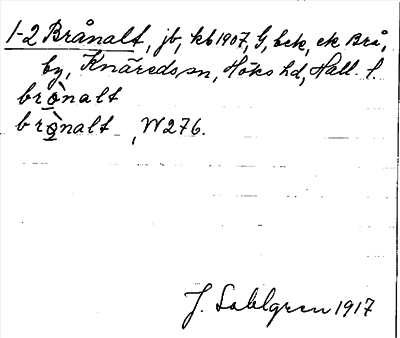 1-2 Brånalt, jb, kb 1907, G, bek, ek Brå,
by, Knäreds sn, Höks hd, Hall. l.
brònalt
brònalt, W276.
J. Sahlgren 1917